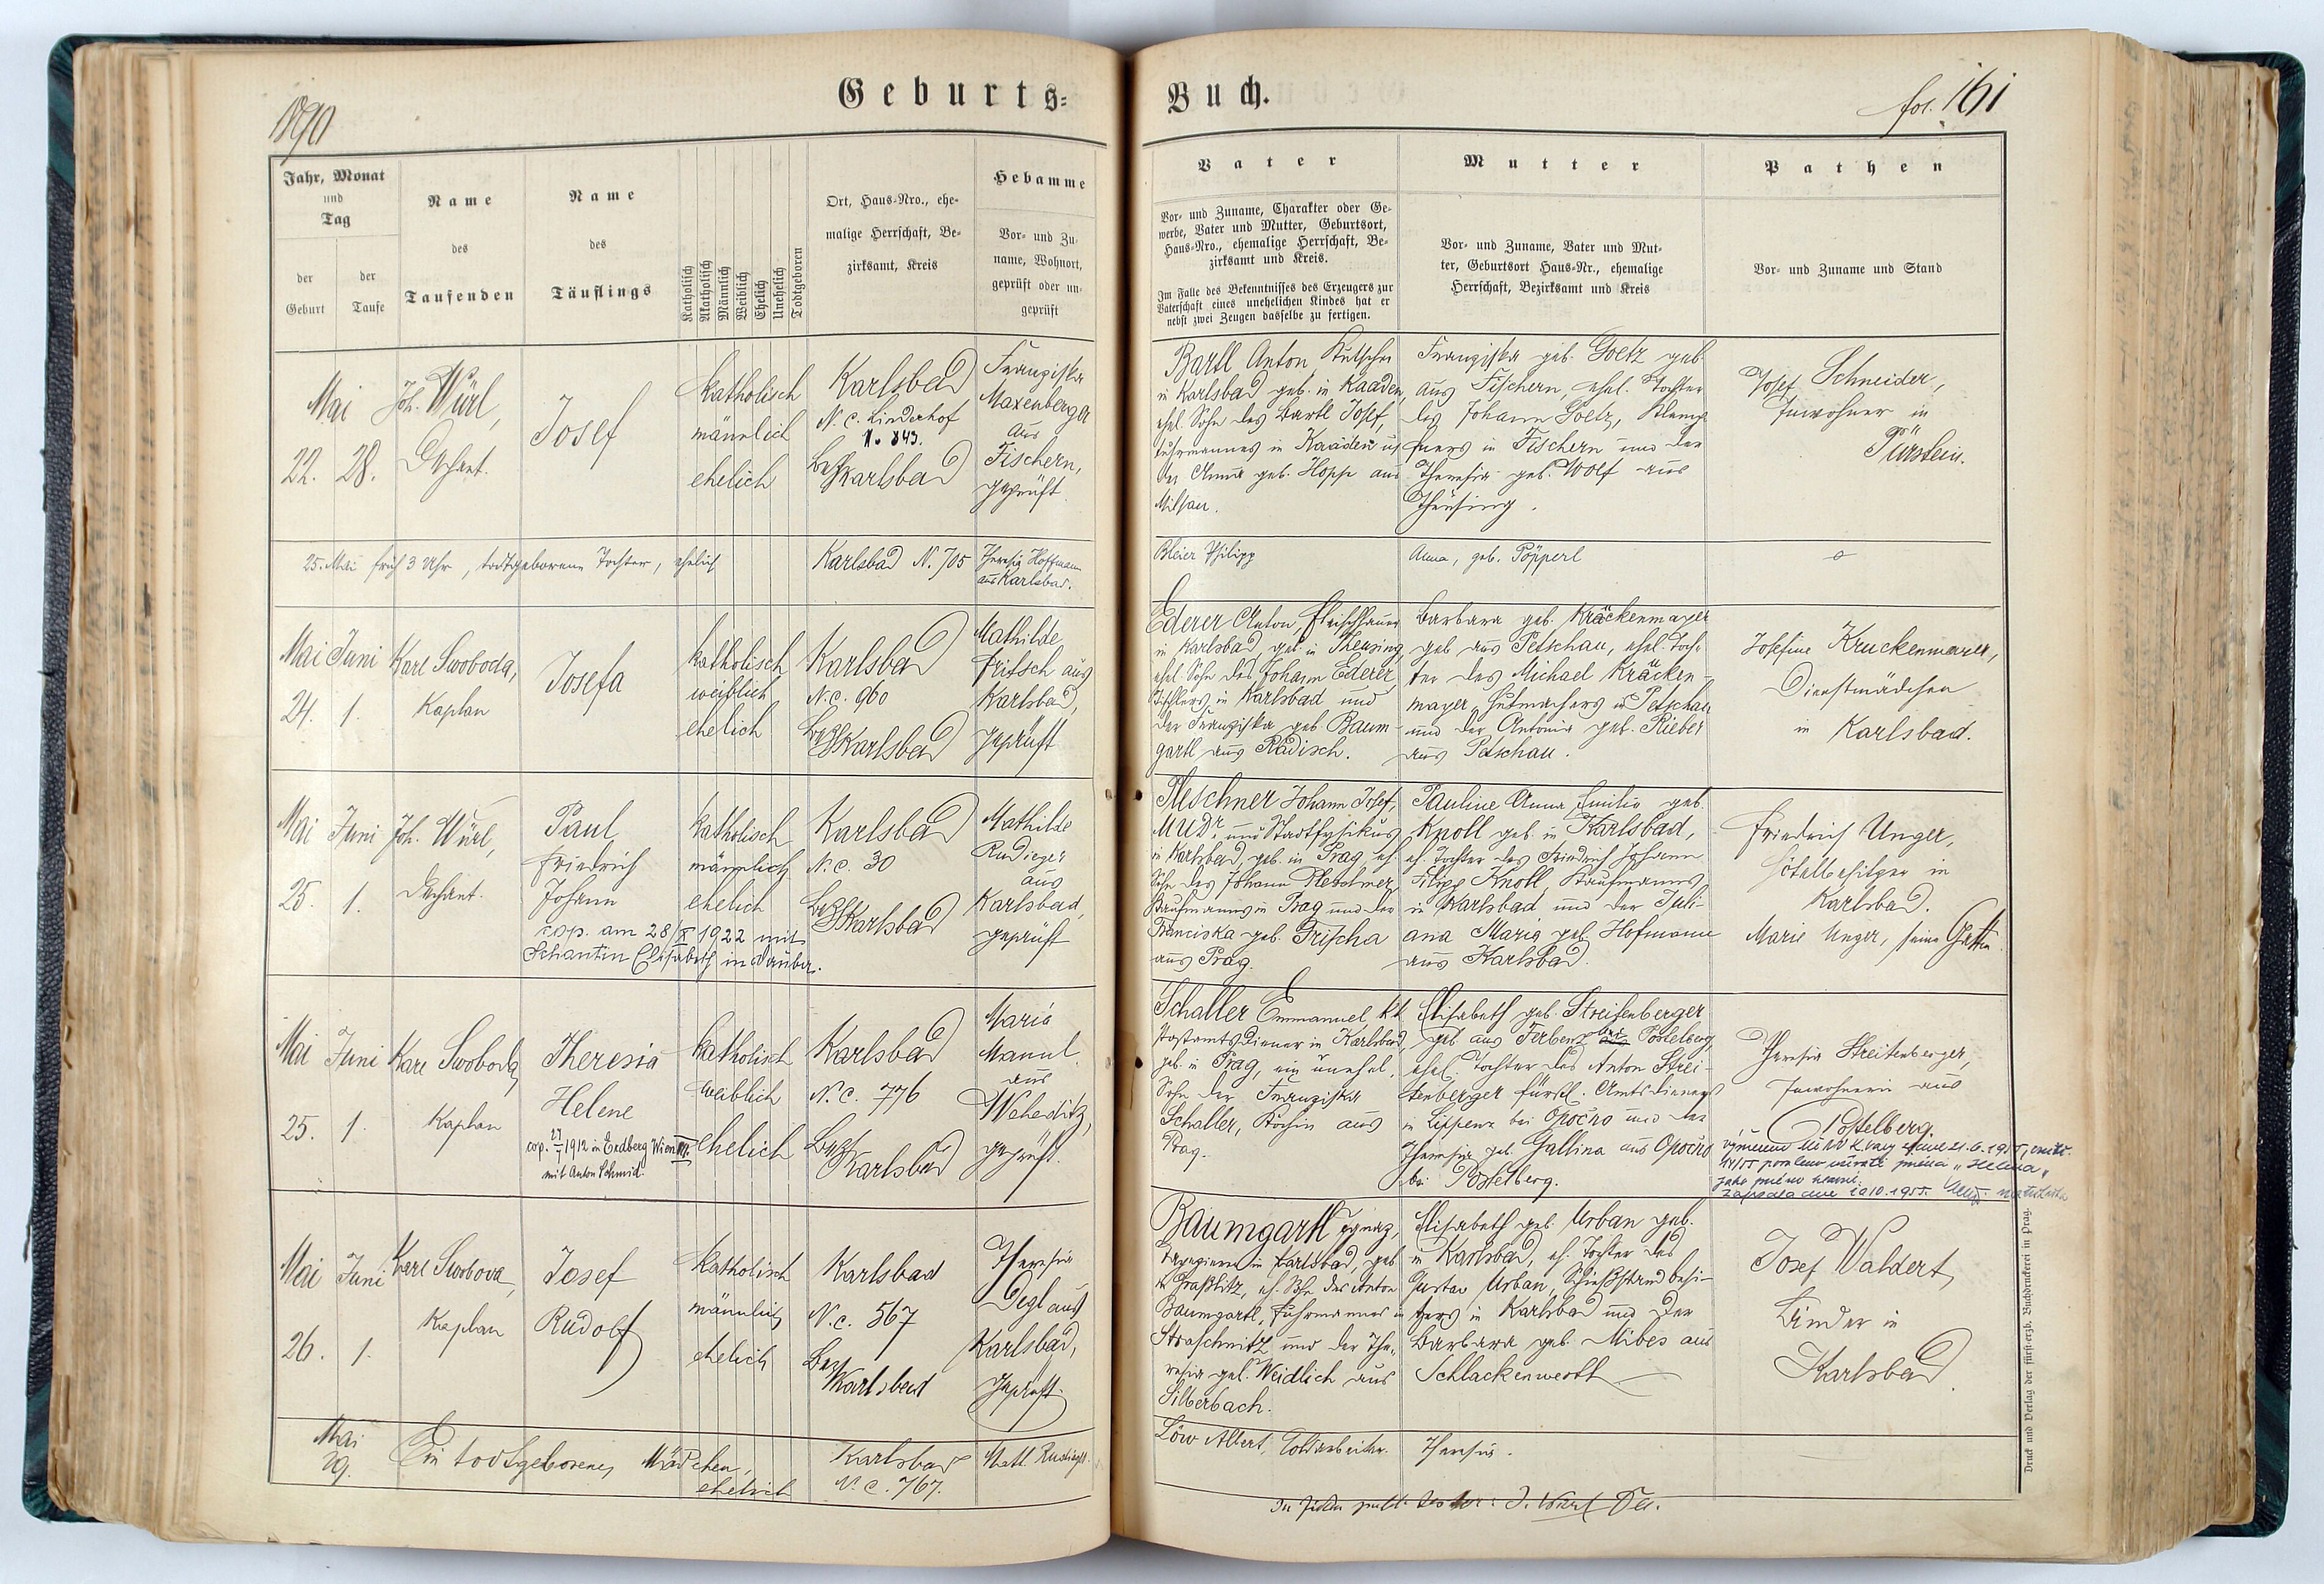 1890
Geburts-
Jahr, Monat
und
Tag
der
Geburt
der
Taufe
Name
des
Taufenden
Name
des
Täuflings
Katholisch
Akatholisch
Männlich
Weiblich
Ehelich
Unehelich
Todtgeboren
Ort, Haus-Nro., ehe-
malige Herrschaft, Be-
zirksamt, Kreis
Hebamme
Vor- und Zu-
name, Wohnort,
geprüft oder un-
geprüft
Mai
22. 28.
Joh. Würl,
Dechant.
Josef
katholisch
männlich
ehelich
Karlsbad
N. C. Linderhof
N. 843.
Bez Karlsbad
Franziska
Maxenberger
aus
Fischern,
geprüft.
25. Mai früh 3 Uhr, todtgeborene Tochter, ehelich
Karlsbad N. 705
Theresia Hoffmann
aus Karlsbad.
Mai Juni
24. 1.
Karl Swoboda,
Kaplan
Josefa
katholisch
weiblich
ehelich
Karlsbad
N. C. 960
Bez Karlsbad
Mathilde
Fritsch aus
Karlsbad,
geprüft
Mai Juni
25. 1.
Joh. Würl,
Dechant.
Paul
Friedrich
Johann
cop. am 28/X 1922 mit
Schantin Elisabeth in
katholisch
männlich
ehelich
Karlsbad
N. C. 30
Bez Karlsbad
Mathilde
Rudieger
aus
Karlsbad,
geprüft
Mai Juni
25. 1.
Karl Swoboda,
Kaplan
Theresia
Helene
cop. 1912 in Erdberg Wien III.
mit Anton Schmid.
katholisch
weiblich
ehelich
Karlsbad
N. C. 776
Bez Karlsbad
Maria
Mannl
aus
Weheditz,
geprüft.
Mai Juni
26. 1.
Karl Swoboda,
Kaplan
Josef
Rudolf
katholisch
männlich
ehelich
Karlsbad
N. C. 567
Bez Karlsbad
Theresia
Degl aus
Karlsbad,
geprüft.
Mai
29.
Ein todtgeborenes Mädchen,
ehelich
Karlsbad
N. C. 767.
Math. Rudieger
Buch.
fol. 161
Vater
Vor- und Zuname, Charakter oder Ge-
werbe, Vater und Mutter, Geburtsort,
Haus-Nro., ehemalige Herrschaft, Be-
zirksamt und Kreis.
Im Falle des Bekenntnisses des Erzeugers zur
Vaterschaft eines unehelichen Kindes hat er
nebst zwei Zeugen dasselbe zu fertigen.
Mutter
Vor- und Zuname, Vater und Mut-
ter, Geburtsort Haus-Nr., ehemalige
Herrschaft, Bezirksamt und Kreis
Pathen
Vor- und Zuname und Stand
Bartl Anton, Kutscher
in Karlsbad geb. in Kaaden,
ehel. Sohn des Bartl Josef,
Fuhrmannes in Kaaden u
der Anna geb. Hopp aus
Milsau.
Franziska geb. Goetz geb.
aus Fischern, ehel. Tochter
des Johann Goetz, Klemp
ners in Fischern und der
Theresia geb. Wolf aus
Theusing.
Josef Schneider,
Inwohner in
Pürstein.
Bleier Philipp
Anna, geb. Pöpperl
o
Ederer Anton, Fleischhauer
in Karlsbad, geb. in Theusing,
ehel. Sohn des Johann Ederer,
Tischlers in Karlsbad und
der Franziska geb. Baum-
gartl aus Radisch.
Barbara geb. Kräckenmayer
geb. aus Petschau, ehel. Toch-
ter des Michael Kräcken-
mayer, Hutmachers in Petschau
und der Antonia geb. Rieber
aus Petschau.
Josefine Kruckenmayer,
Dienstmädchen
in Karlsbad.
Pleschner Johann Josef,
MUDr. und Stadtfysikus
in Karlsbad, geb. in Prag, eh.
Sohn des Johann Pleschner,
Kaufmanns in Prag und der
Franciska geb. Grischa
aus Prag.
Pauline Anna Emilie geb.
Knoll geb. in Karlsbad,
eh. Tochter des Friedrich Johann
Filipp Knoll, Kaufmanns
in Karlsbad und der Juli-
ana Maria geb. Hofmann
aus Karlsbad.
Friedrich Unger,
Hôtelbesitzer in
Karlsbad.
Marie Unger, seine Gattin
Schaller Emmanuel kk
Postamtsdiener in Karlsbad,
geb. in Prag, ein unehel.
Sohn der Franziska
Schaller, Köchin aus
Prag.
Elisabeth geb. Streitenberger
geb. aus Ferbenz bei Postelberg,
ehel. Tochter des Anton Strei-
tenberger fürstl. Amtsdieners
in Lippenz bei Opočno und der
Theresia geb. Gallina aus Opočno
bei Postelberg.
Theresia Streitenberger,
Inwohnerin aus
Postelberg.
K. Vary 21.6.1955,
jména „Helena“
10.1955.
Baumgartl Ignaz,
in Karlsbad, geb.
in Graßlitz, eh. Sohn des Anton
Baumgartl, Fuhrmannes in
Straschnitz und der The-
resia geb. Weidlich aus
Silberbach.
Elisabeth geb. Urban geb.
in Karlsbad, eh. Tochter des
Gustav Urban, Schießstandbesi-
tzers in Karlsbad und der
Barbara geb. Mibes aus
Schlackenwerth
Josef Waldert,
Binder in
Karlsbad.
Löw Albert, Goldarbeiter.
Theresia.
Druck und Verlag der fürst-erzb. Buchdruckerei in Prag.